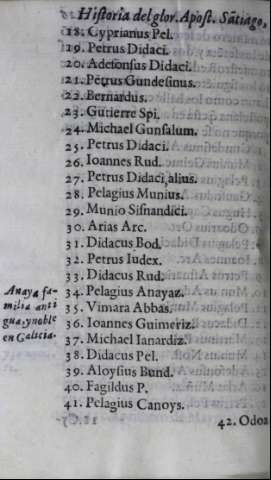 Historia del glor. Apost. Sātiago,
18. Cyprianus Pel.
19. Petrus Didaci.
20. Adefonsus Didaci.
21. Petrus Gundesinus.
22. Bernardus.
23. Gutierre Spi.
24. Michael Gunsalum.
25. Petrus Didaci.
26. Ioannes Rud.
27. Petrus Didaci, alius.
28. Pelagius Munius.
29. Munio Sisnandici.
30. Arias Arc.
31. Didacus Bod.
32. Petrus Iudex.
33. Didacus Rud.
Anaya fa-
milia anti
gua, y noble
en Galicia.
34. Pelagius Anayaz.
35. Vimara Abbas.
36. Ioannes Guimeriz.
37. Michael Ianardiz.
38. Didacus Pel.
39. Aloysius Bund.
40. Fagildus P.
41. Pelagius Canoys.
42. Odoa